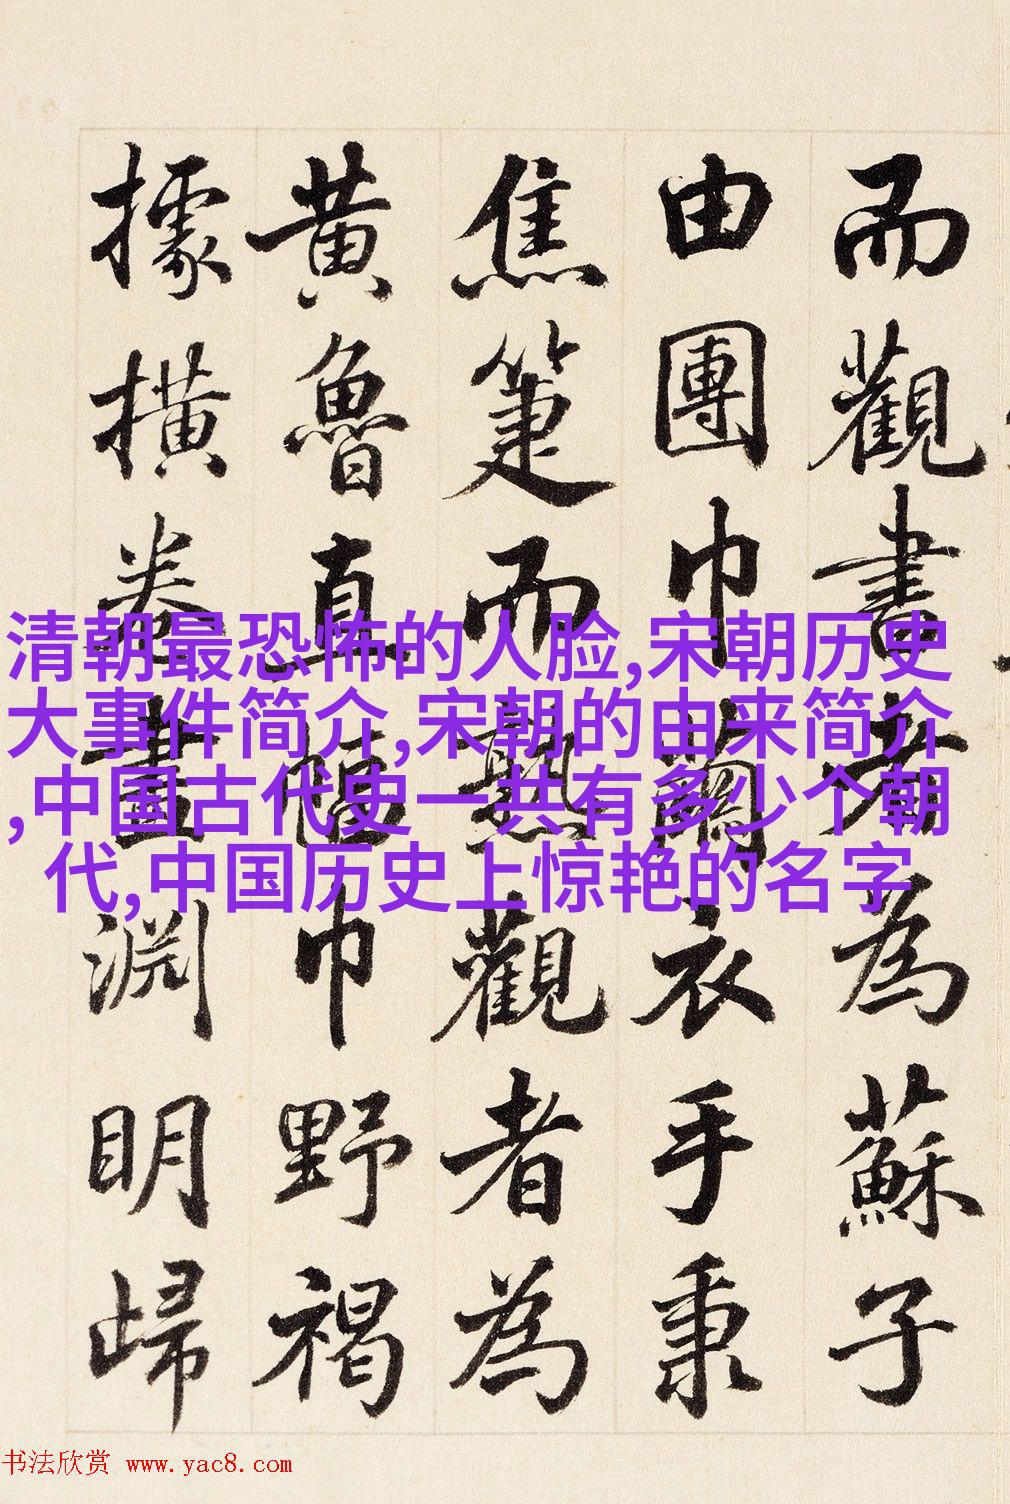 而觀書者為蘇子
由團巾繭衣手秉
焦箑而熟觀者為
黃魯直幅巾野褐
據撗卷畫淵明歸
清朝最恐怖的人脸,宋朝历史
大事件简介,宋朝的由来简介
,中国古代史一共有多少个朝
代,中国历史上惊艳的名字
书法欣赏 www.yac8.com